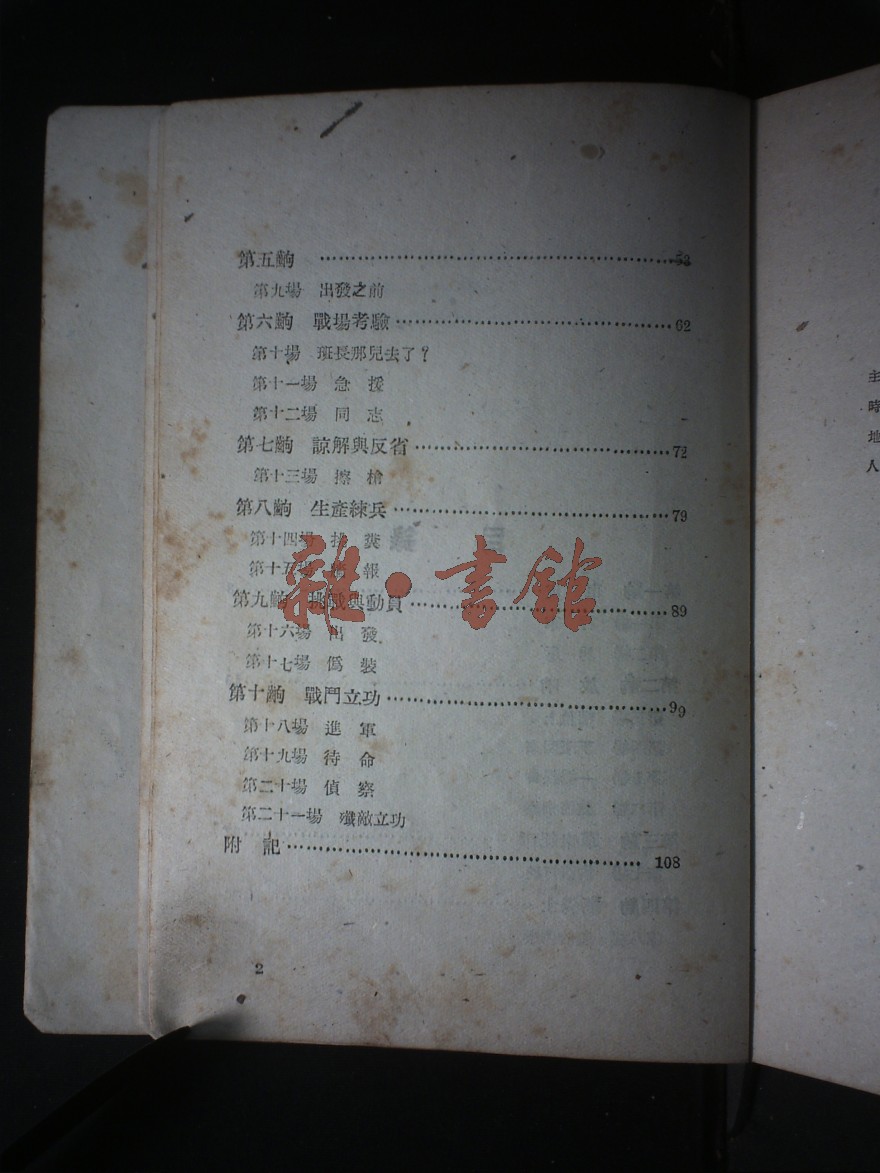 第五齣 ……53
第九場 出發之前
第六齣 戰場考驗……62
第十場 班長那兒去了？
第十一場 急 援
第十二場 同 志
第七齣 諒解與反省……72
第十三場 擦 槍
第八齣 生產練兵……79
第十四場 糞
第十五場 報
第九齣 挑戰與動員……89
第十六場 出 發
第十七場 僞 裝
第十齣 戰鬥立功……99
第十八場 進 軍
第十九場 待 命
第二十場 偵 察
第二十一場 殲敵立功
附 記……108
2
雜·書館
主
時
地
人